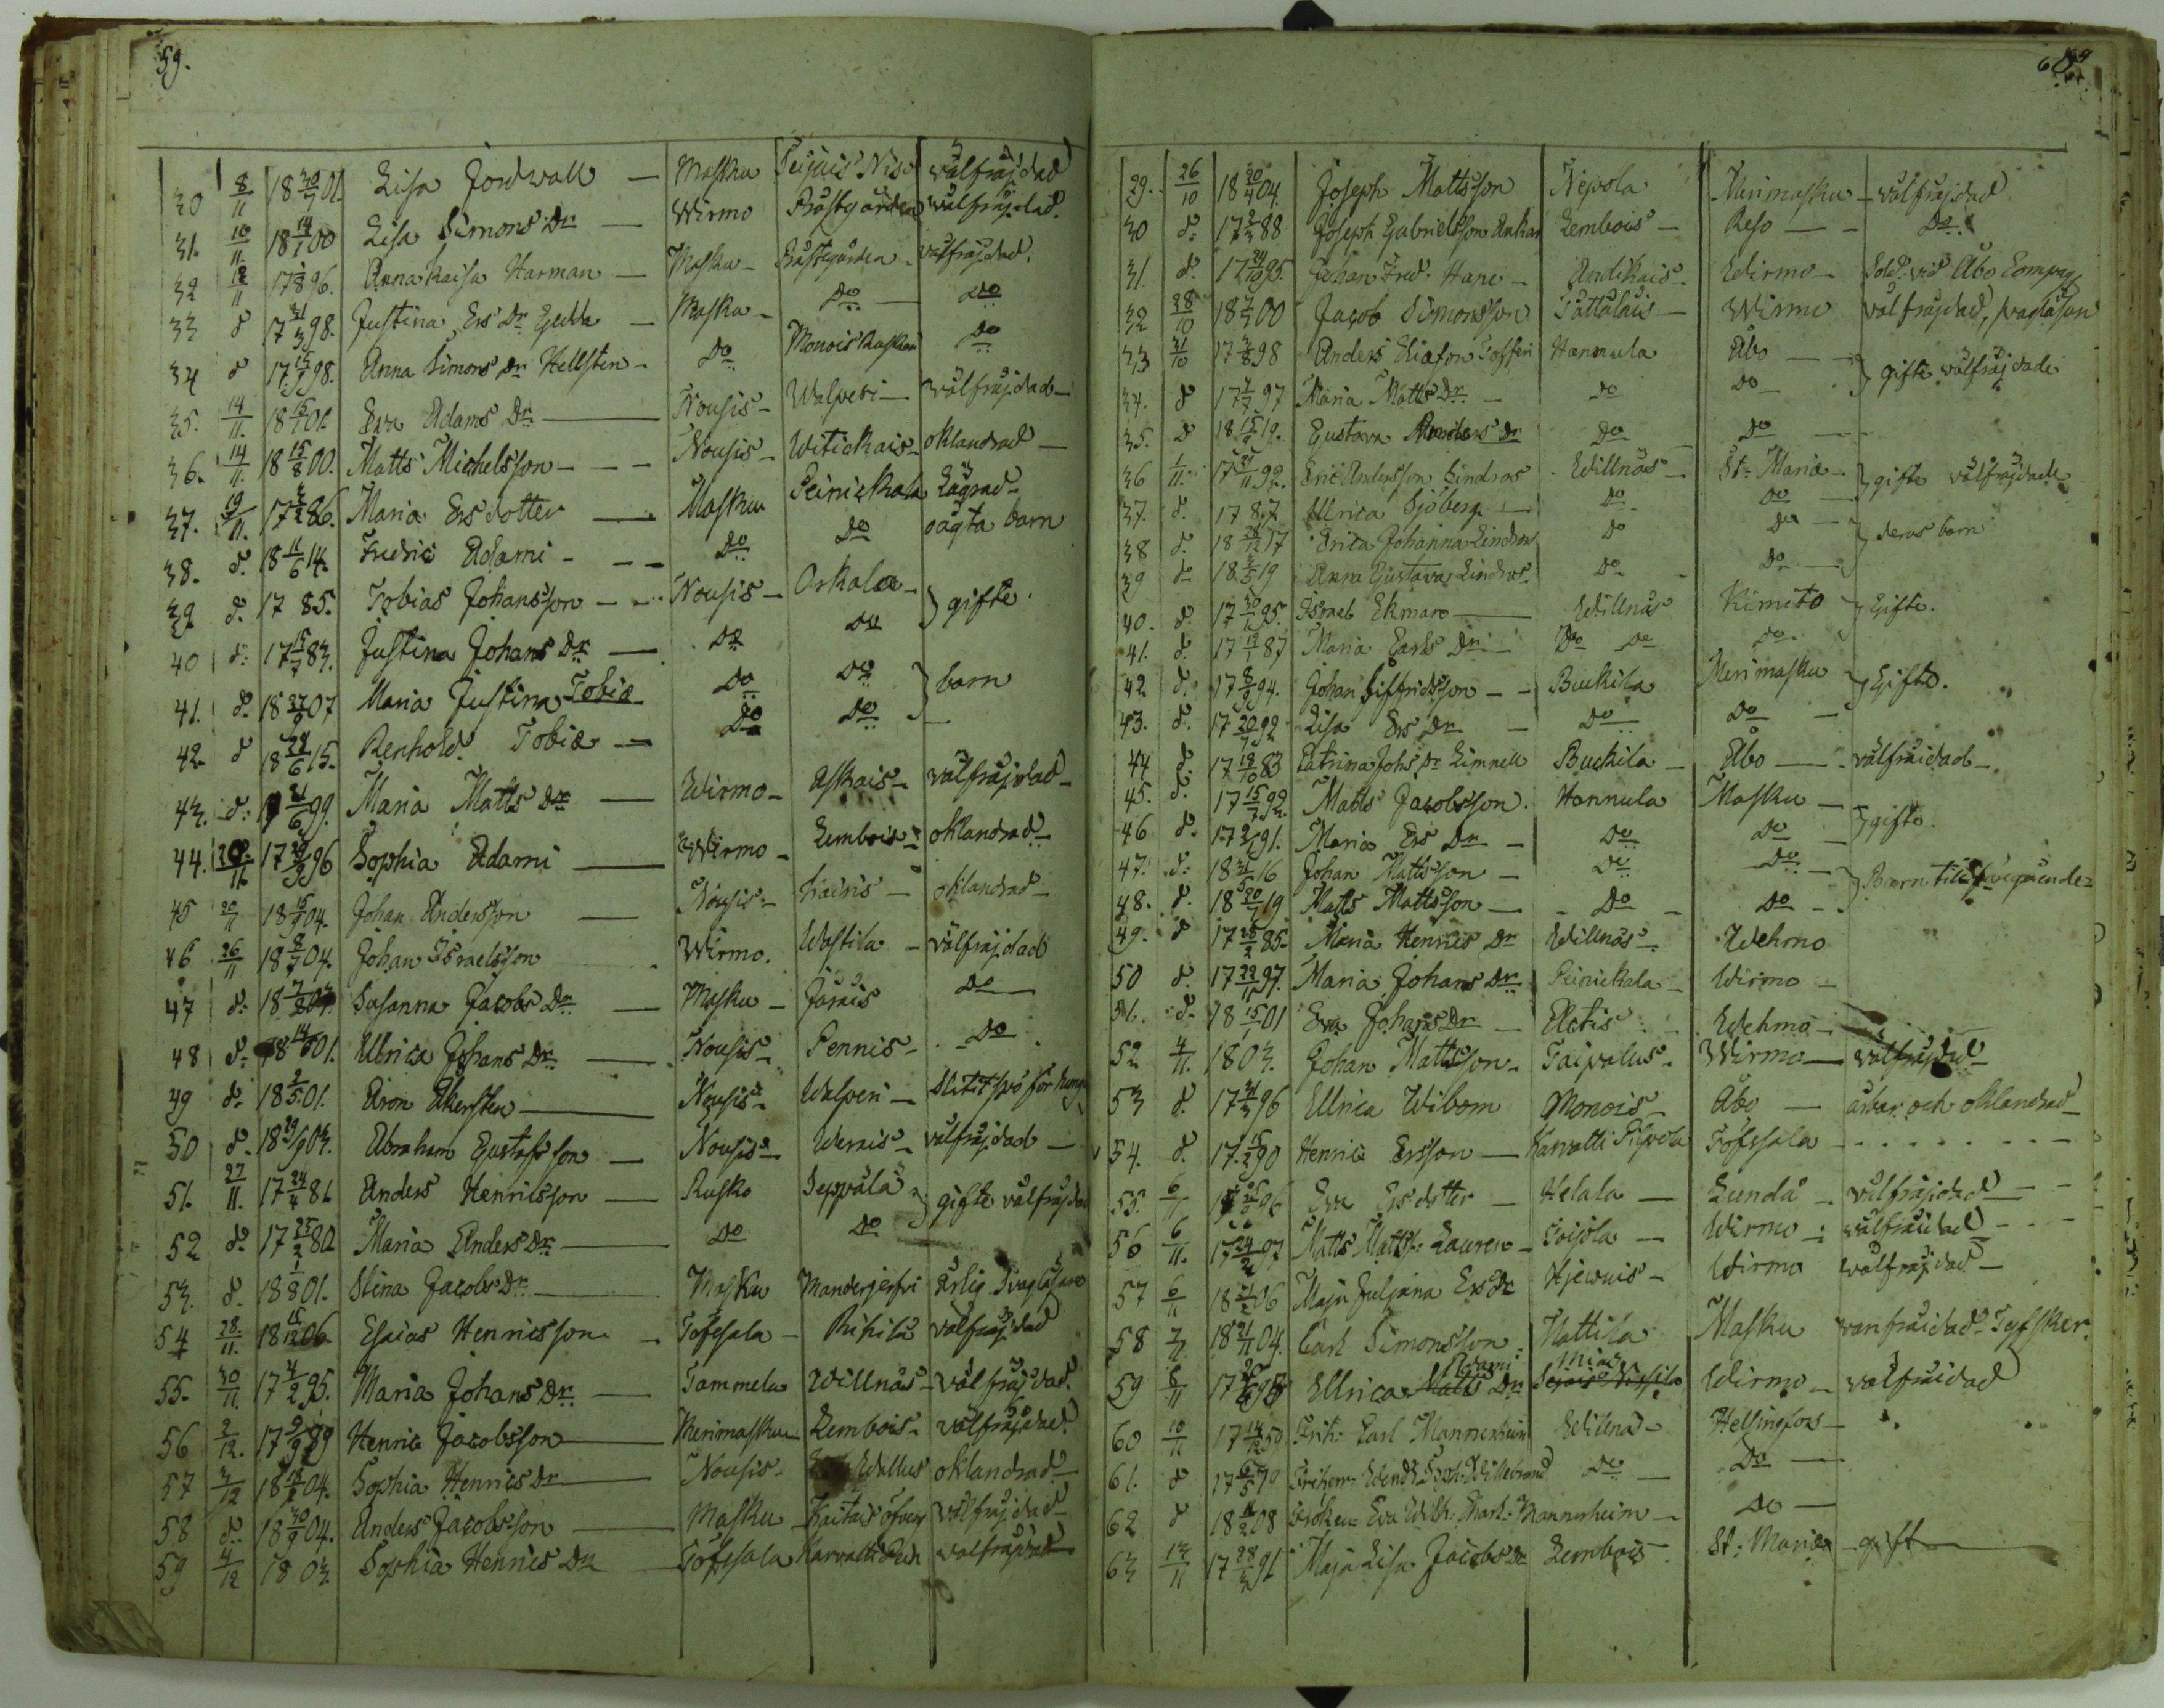 59.
30 8/11 18 30/7 01. Lisa Jordwall — Masku Teijais Niss välfräjdad
31. 10/11. 18 14/1 00 Lisa Simons Dr — Wirmo Prästgården välfräjdad.
32 12/11 17 1/8 96. Anna Kaisa Harman — Masku - Prästgården - välfräjdad.
33 d 17 21/3 98. Justina Ers Dr Gedda — Masku - Do — Do
34 d 17 15/1 98. Anna Simons Dr Hellsten - Do Monois Do
35. 14/11. 18 15/1 01. Eva Adams Dr — Nousis - Walperi — välfräjdad —
36. 14/11. 18 15/8 00. Matts Michelsson - - - Nousis - Witickais - oklandrad —
37. 19/11. 17 2/2 86. Maria Ersdotter — Masku Peinickala Lägrad -
38. d. 18 11/6 14. Fredric Adami - - - Do Do oägta barn
39 d. 17 85. Tobias Johansson - - Nousis — Orkola - } gifte.
40 d: 17 15/7 83. Justina Johans Dr — Do Do
41. d. 18 27/9 07 Maria Justina Tobiæ - Do Do } barn
42. d 18 29/6 15. Renhold. Tobiæ — Do Do —
43. d: 17 21/6 99. Maria Matts Dr — Wirmo - Askais - välfräjdad -
44. 20/11 17 29/9 96 Sophia Adami — Wirmo - Lembois - oklandrad -
45 20/11 18 15/9 04. Johan Andersson — Nousis - Kairis — oklandrad -
46 26/11 18 8/7 04. Johan Israelsson - Wirmo. Wastila - välfräjdad
47 d: 18 7/8 04. Susanna Jacobs Dr — Masku - Järäis Do
48 d: 18 14/6 01. Ulrica Johans Dr — Nousis - Pennis - Do
49 d: 18 2/5 01. Aron Åkersten — Nousis - Walperi —
50 d. 18 29/9 03. Abraham Gustafsson — Nousis - Wernis - välfräjdad —
51. 27/11. 17 24/4 81 Anders Henricsson — Rusko Seppälä - } gifte välfräjdad
52 d: 17 25/2 80 Maria Anders Dr — Do Do
53. d. 18 1/8 01. Stina Jacobs Dr — Masku Ärlig
54 28/11. 18 15/12 06 Esaias Henricsson - Töfsala - Rihilä välfräjdad
55. 30/11. 17 4/2 95. Maria Johans Dr — Tammela Willnäs - välfräjdad.
56 2/12. 17 9/9 99 Henric Jacobsson — Merimasku Lembois - välfräjdad.
57 3/12 18 18/8 04. Sophia Henrics Dr — Nousis - Wallus oklandrad —
58 d. 18 30/9 04. Anders Jacobsson — Masku - Kaitais välfräjdad -
59 4/12 18 03. Sophia Henrics Dr — Töfsala Karvatti välfräjdad
60
29. 26/10 18 20/4 04. Joseph Mattsson Nepola Merimasku — välfräjdad
30 d. 17 2/3 88 Joseph Gabrielsson Lembois — Reso — - Do.
31. d. 17 24/10 95. Johan Fred. Hane - Andikais - Wirmo — Sold. vid Åbo Compag.
32 28/10 18 2/7 00 Jacob Simonsson Pättäläis — Wirmo välfräjdad,
33 31/10 17 3/8 98 Anders Eliæson Hannula Åbo — } gifte välfräjdade
34. d 17 2/7 97 Maria Matts Dr - Do Do -
35. d 18 15/9 19. Gustava Anders Dr Do Do -
36 1/11. 17 21/11 92. Eric Andersson Lindros - Willnäs — St. Maria - } gifte välfräjdade
37. d. 17 87 Ulrica Sjöberg — Do - Do —
38 d. 18 28/12 17 Erica Johanna Lindros Do Do — } deras barn
39 d. 18 2/5 19 Anna Gustava Lindros. Do - Do —
40. d. 17 30/11 95. Israel Ekman — Willnäs Kimito } Gifte.
41. d. 17 19/1 87 Maria Carls Dr — Do Do Do
42 d. 17 8/9 94. Johan Sifridsson - - Buckila Merimasku } Gifte.
43. d. 17 20/7 92 Lisa Ers Dr — Do Do —
44 d. 17 18/10 83 Catrina Johs Dr Limnell Buckila - Åbo — - välfräidad -
45. d. 17 15/7 92. Matts Jacobsson. Hannula Masku — } gifte.
46 d. 17 2/1 91. Maria Ers Dr - Do Do —
47. d: 18 21/5 16 Johan Mattsson - Do Do — } Barn till föregående
48. d. 18 20/7 19 Matts Mattsson — - Do - Do -
49. d 17 25/2 85. Maria Henrics Dr Willnäs - Wehmo
50 d. 17 22/11 97. Maria Johans Dr Peinickala - Wirmo —
51. d. 18 15/1 01 Eva Johans Dr — Wehmo -
52 4/11. 18 03. Johan Mattsson - Taipalus - Wirmo — välfräjdad -
53 d. 17 21/3 96 Ulrica Wibom Monois - Åbo — ärbar och oklandrad —
54. d. 17 15/2 90 Henric Ersson — Karvatti Töfssala - - - - - -
55. 6/11 96 Eva Ersdotter — Helala — Lundå - välfräjdad - -
56 6/11. 17 24/2 97 Matts Matts: Lauren - Soijola — Wirmo - välfräidad - - -
57 6/11 18 21/2 06 Maja Juljana Ers Dr Hjewais - Wirmo välfräjdad —
58 7/11. 18 21/11 04. Carl Simonsson - Hattila Masku vanfräidad -
59 8/11 17 Ullrica Matts Adami Dr Wirmo - välfräidad
60 10/11 17 14/12 59 Frih: Carl Mannerheim Willnäs - Helsingfors -
61. d 17 6/5 70 Friherr: Wendl: Soph: Willebrand Do — Do —
62 d 18 14/2 08 Fröken Eva Wilh: Charl: Mannerheim - Do —
63 13/11 17 28/3 91 Maja Lisa Jacobs Dr Lembois - St: Marie - gift —